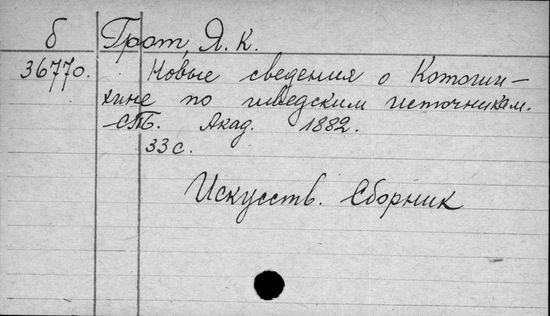 б Грот, Я. К.
36770. Новые сведения о Котоши-
хине по шведским источникам.
СПБ. Акад. 1882.
33 с.
Искусств. Сборник